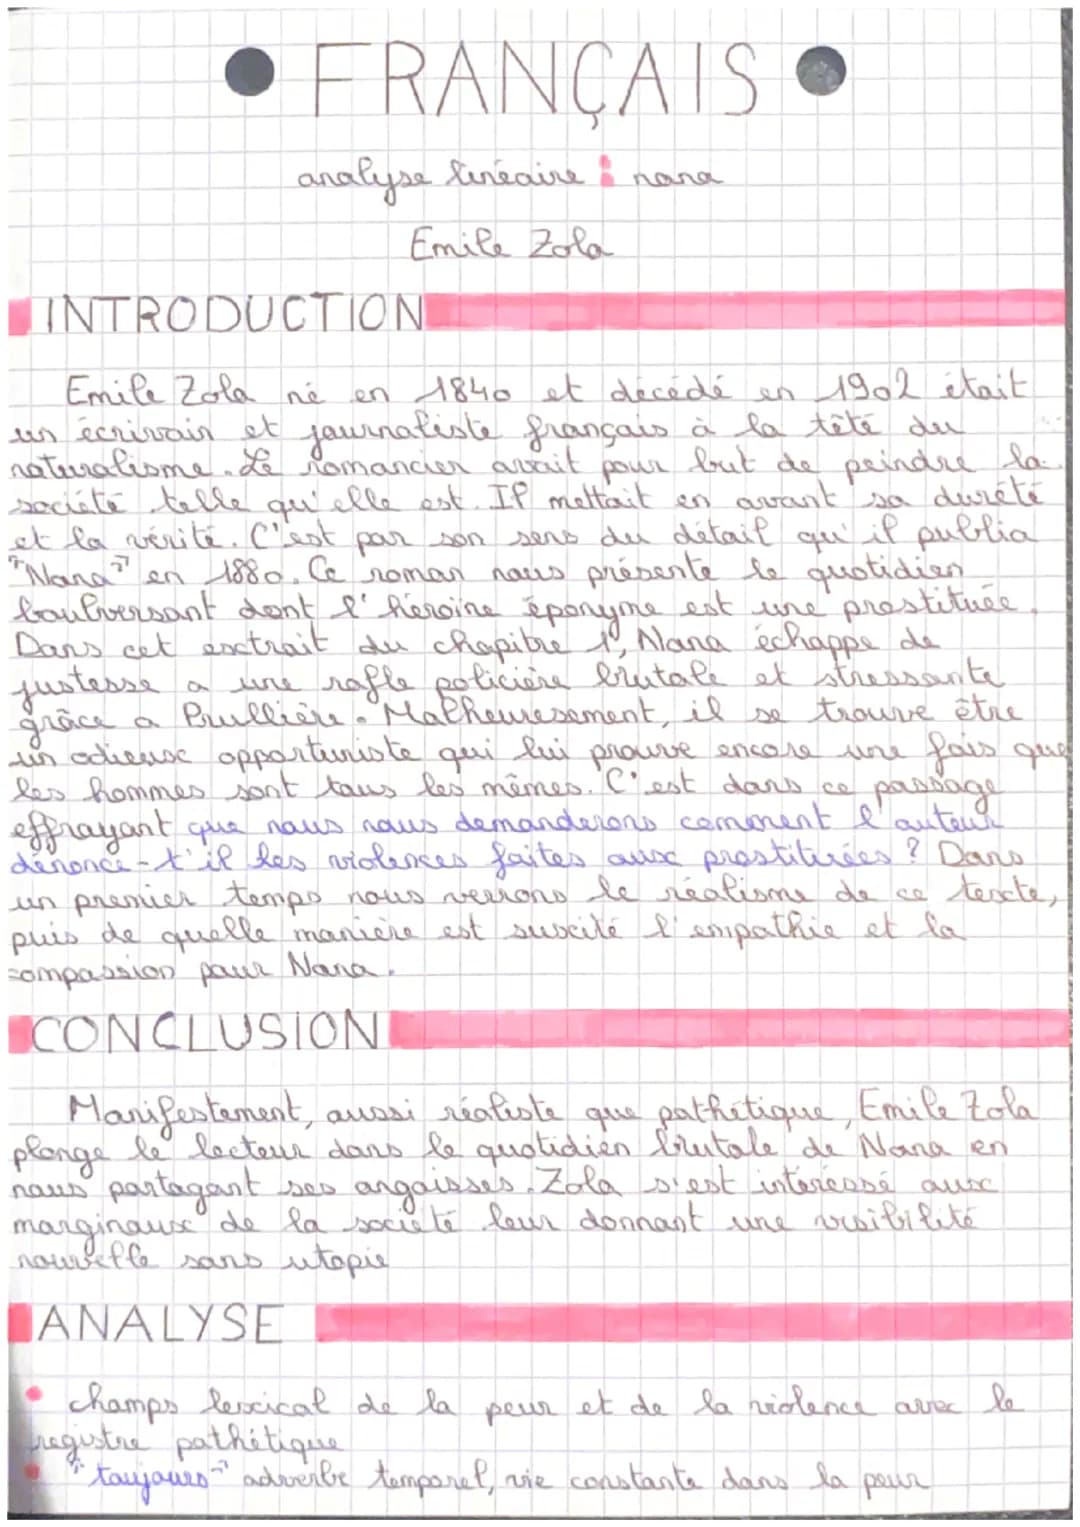 • FRANÇAIS •
analyse linéaire : nana
Emile Zola
INTRODUCTION
Emile Zola né en 1840 et décédé en 1902 était
un écrivain et journaliste français à la tête du
naturalisme. Le romancier avait pour but de peindre la
société telle qu'elle est. Il mettait en avant sa dureté
et la vérité. C'est par son sens du détail qu'il publia
"Nana" en 1880. Ce roman nous présente le quotidien
boulversant dont l'héroïne éponyme est une prostituée.
Dans cet extrait du chapitre 1, Nana échappe de
justesse a une rafle policière brutale et stressante
grâce a Prullière. Malheuresement, il se trouve être
un odieux opportuniste qui lui prouve encore une fois que
les hommes sont tous les mêmes. C'est dans ce passage
effrayant que nous nous demanderons comment l'auteur
dénonce-t'il les violences faites aux prostituées ? Dans
un premier temps nous verrons le réalisme de ce texte,
puis de quelle manière est suscité l'empathie et la
compassion pour Nana.
CONCLUSION
Manifestement, aussi réaliste que pathétique, Emile Zola
plonge le lecteur dans le quotidien brutale de Nana en
nous partagant ses angoisses. Zola s'est intéréssé aux
marginaux de la société leur donnant une visibilité
nouvelle sans utopie
ANALYSE
• champs lexical de la peur et de la violence avec le
registre pathétique
• "toujours" adverbe temporel, vie constante dans la peur